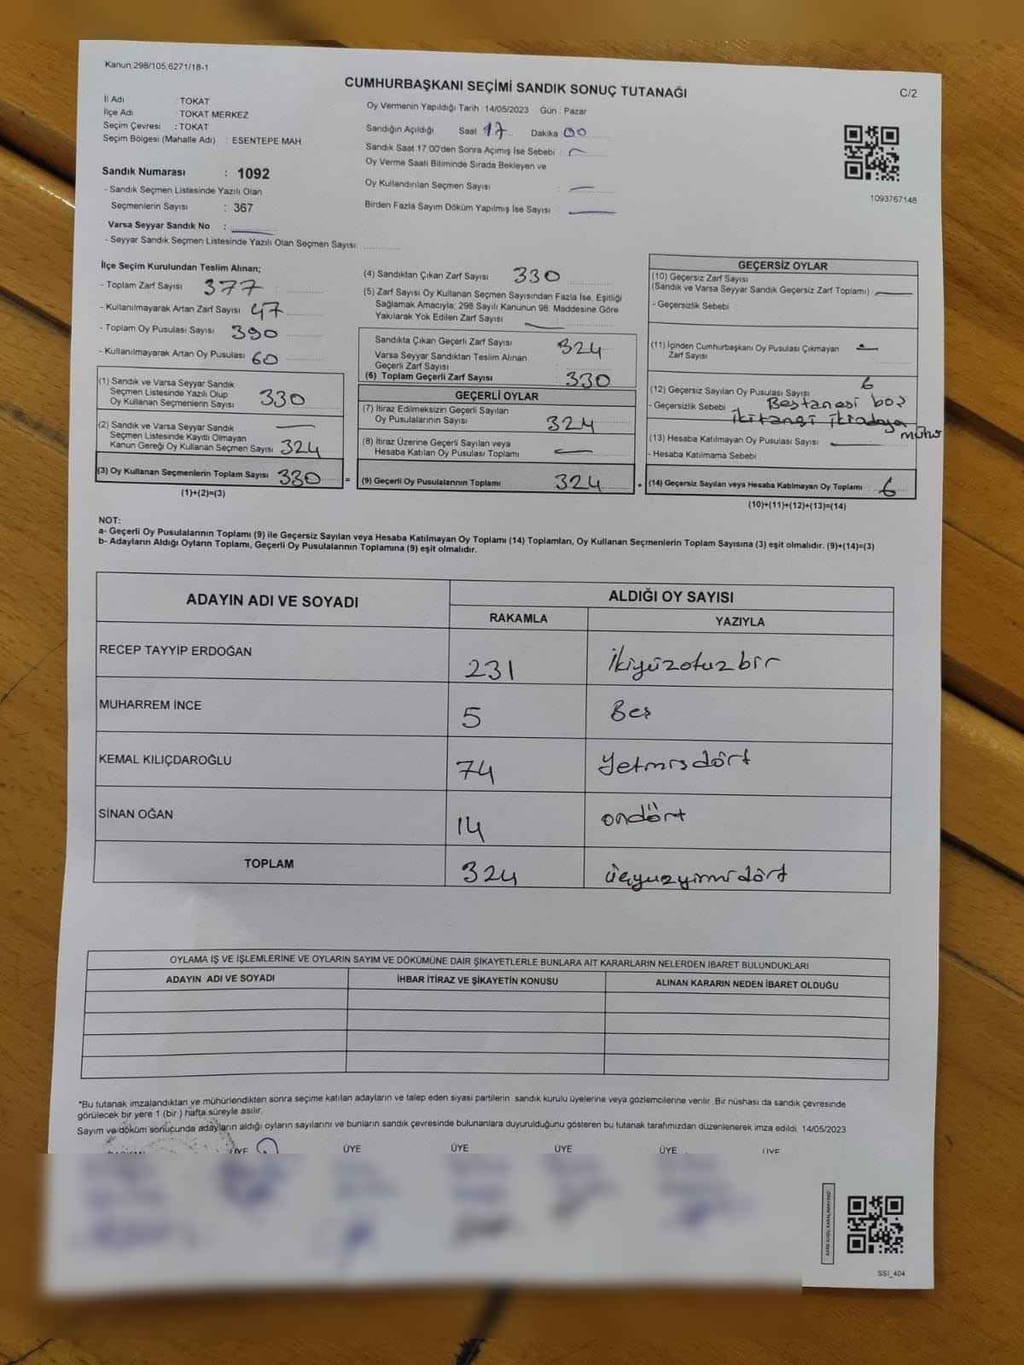 Kanun,298/105,6271/18-1
CUMHURBAŞKANI SEÇİMİ SANDIK SONUÇ TUTANAĞI
C/2
İl Adı : TOKAT
İlçe Adı : TOKAT MERKEZ
Seçim Çevresi : TOKAT
Seçim Bölgesi (Mahalle Adı) : ESENTEPE MAH.
Sandık Numarası : 1092
- Sandık Seçmen Listesinde Yazılı Olan
Seçmenlerin Sayısı : 367
Varsa Seyyar Sandık No :
- Seyyar Sandık Seçmen Listesinde Yazılı Olan Seçmen Sayısı
Oy Vermenin Yapıldığı Tarih : 14/05/2023 Gün : Pazar
Sandığın Açıldığı Saat 17 Dakika 00
Sandık Saat 17:00'den Sonra Açılmış İse Sebebi :
Oy Verme Saati Bitiminde Sırada Bekleyen ve
Oy Kullandırılan Seçmen Sayısı :
Birden Fazla Sayım Döküm Yapılmış İse Sayısı :
1093767148
İlçe Seçim Kurulundan Teslim Alınan;
- Toplam Zarf Sayısı : 377
- Kullanılmayarak Artan Zarf Sayısı : 47
- Toplam Oy Pusulası Sayısı : 390
- Kullanılmayarak Artan Oy Pusulası : 60
(1) Sandık ve Varsa Seyyar Sandık
Seçmen Listesinde Yazılı Olup
Oy Kullanan Seçmenlerin Sayısı 330
(2) Sandık ve Varsa Seyyar Sandık
Seçmen Listesinde Kayıtlı Olmayan
Kanun Gereği Oy Kullanan Seçmen Sayısı 324
(3) Oy Kullanan Seçmenlerin Toplam Sayısı 330
(1)+(2)=(3)
=
(4) Sandıktan Çıkan Zarf Sayısı 330
(5) Zarf Sayısı Oy Kullanan Seçmen Sayısından Fazla İse, Eşitliği
Sağlamak Amacıyla; 298 Sayılı Kanunun 98. Maddesine Göre
Yakılarak Yok Edilen Zarf Sayısı
Sandıkta Çıkan Geçerli Zarf Sayısı 324
Varsa Seyyar Sandıktan Teslim Alınan
Geçerli Zarf Sayısı
(6) Toplam Geçerli Zarf Sayısı 330
GEÇERLİ OYLAR
(7) İtiraz Edilmeksizin Geçerli Sayılan
Oy Pusulalarının Sayısı 324
(8) İtiraz Üzerine Geçerli Sayılan veya
Hesaba Katılan Oy Pusulası Toplamı
(9) Geçerli Oy Pusulalarının Toplamı 324
+
GEÇERSİZ OYLAR
(10) Geçersiz Zarf Sayısı
(Sandık ve Varsa Seyyar Sandık Geçersiz Zarf Toplamı)
- Geçersizlik Sebebi
(11) İçinden Cumhurbaşkanı Oy Pusulası Çıkmayan
Zarf Sayısı
(12) Geçersiz Sayılan Oy Pusulası Sayısı 6
- Geçersizlik Sebebi Beştanesi boş
ikitanesi ikiadaya mühür
(13) Hesaba Katılmayan Oy Pusulası Sayısı
- Hesaba Katılmama Sebebi
(14) Geçersiz Sayılan veya Hesaba Katılmayan Oy Toplamı 6
(10)+(11)+(12)+(13)=(14)
NOT:
a- Geçerli Oy Pusulalarının Toplamı (9) ile Geçersiz Sayılan veya Hesaba Katılmayan Oy Toplamı (14) Toplamları, Oy Kullanan Seçmenlerin Toplam Sayısına (3) eşit olmalıdır. (9)+(14)=(3)
b- Adayların Aldığı Oyların Toplamı, Geçerli Oy Pusulalarının Toplamına (9) eşit olmalıdır.
ADAYIN ADI VE SOYADI
ALDIĞI OY SAYISI
RAKAMLA
YAZIYLA
RECEP TAYYİP ERDOĞAN 231 ikiyüzotuzbir
MUHARREM İNCE 5 Beş
KEMAL KILIÇDAROĞLU 74 Yetmişdört
SİNAN OĞAN 14 ondört
TOPLAM 324 üçyüzyirmidört
OYLAMA İŞ VE İŞLEMLERİNE VE OYLARIN SAYIM VE DÖKÜMÜNE DAİR ŞİKAYETLERLE BUNLARA AİT KARARLARIN NELERDEN İBARET BULUNDUKLARI
ADAYIN ADI VE SOYADI
İHBAR İTİRAZ VE ŞİKAYETİN KONUSU
ALINAN KARARIN NEDEN İBARET OLDUĞU
*Bu tutanak imzalandıktan ve mühürlendikten sonra seçime katılan adayların ve talep eden siyasi partilerin sandık kurulu üyelerine veya gözlemcilerine verilir. Bir nüshası da sandık çevresinde
görülecek bir yere 1 (bir ) hafta süreyle asılır.
Sayım ve döküm sonucunda adayların aldığı oyların sayılarını ve bunların sandık çevresinde bulunanlara duyurulduğunu gösteren bu tutanak tarafımızdan düzenlenerek imza edildi. 14/05/2023
BAŞKAN ÜYE ÜYE ÜYE ÜYE ÜYE ÜYE
SSI_404